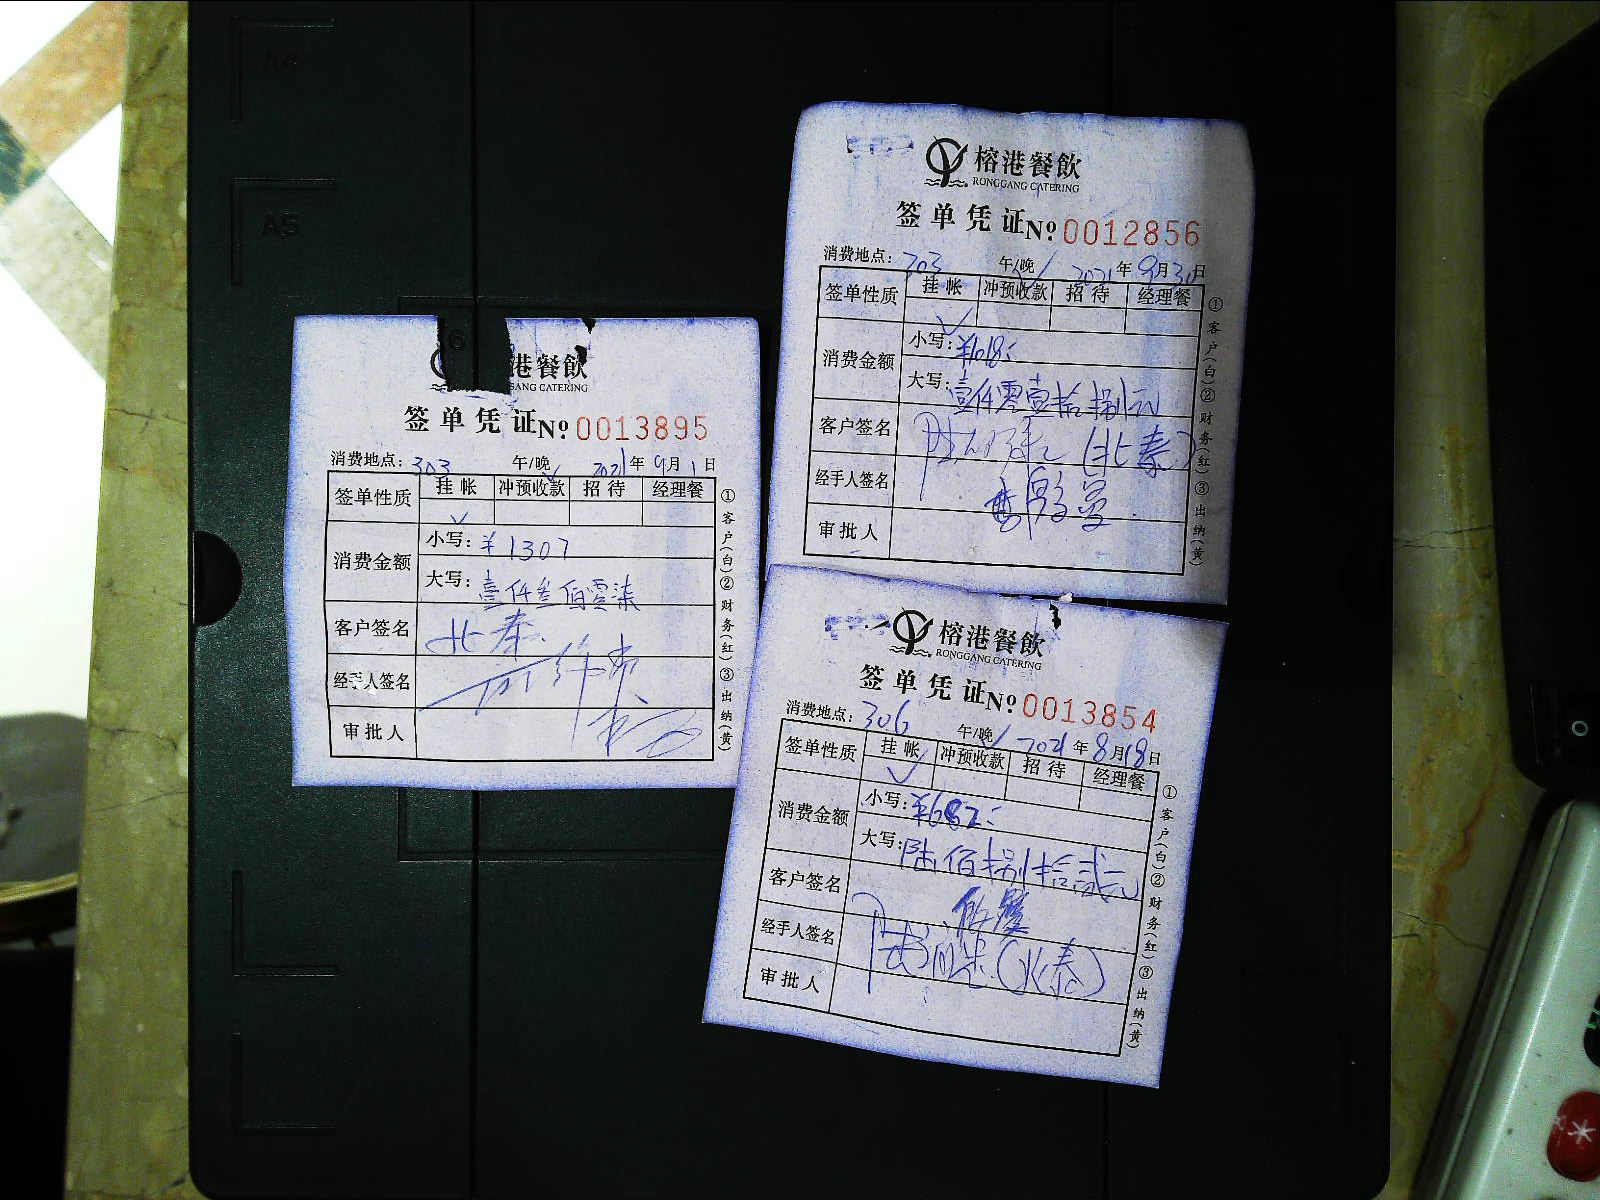 A4
A5
6
港餐飲
签单凭证 Nº 0013895
消费地点：303 午/晚 2021年9月1日
签单性质 挂帐 冲预收款 招待 经理餐
消费金额 小写：¥1307
大写：壹仟叁佰零柒
客户签名 北泰
经手人签名
审批人
①客户(白)②财务(红)③出纳(黄)
榕港餐飲
RONGGANG CATERING
签单凭证 Nº 0012856
消费地点：303 午/晚 2021年9月30日
签单性质 挂帐 冲预收款 招待 经理餐
消费金额 小写：¥1018
大写：壹仟零壹拾捌元
客户签名 (北泰)
经手人签名
审批人
①客户(白)②财务(红)③出纳(黄)
榕港餐飲
RONGGANG CATERING
签单凭证 Nº 0013854
消费地点：306 午/晚 2021年8月18日
签单性质 挂帐 冲预收款 招待 经理餐
消费金额 小写：¥682
大写：陆佰捌拾贰元
客户签名
经手人签名
审批人
①客户(白)②财务(红)③出纳(黄)